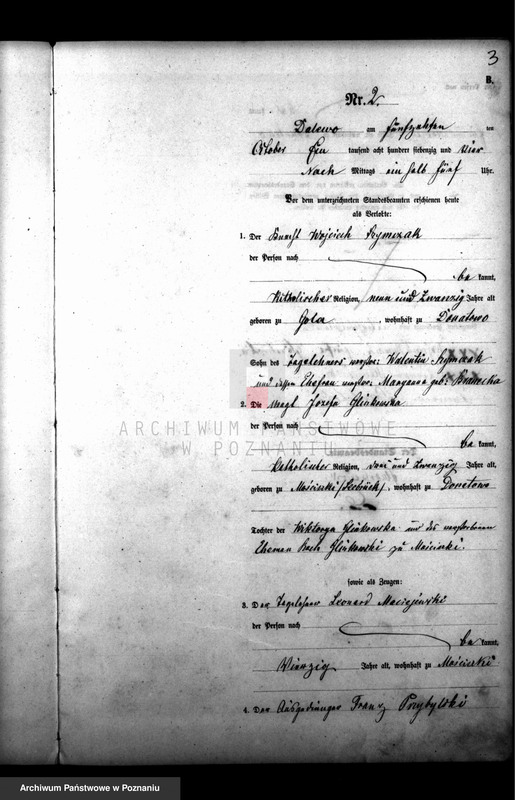 3
B.
Nr. 2.
Dalewo am fünfzehnten ten
October Ein tausend acht hundert siebenzig und vier
Nach Mittags ein halb fünf Uhr.
Vor dem unterzeichneten Standesbeamten erschienen heute
als Verlobte:
1. Der Knecht Wojciech Szymczak
der Person nach
be kannt,
katholischer Religion, neun und zwanzig Jahre alt
geboren zu Gola, wohnhaft zu Donatowo
Sohn des Tagelöhners verstor: Walentin Szymczak
und dessen Ehefrau verstor: Maryanna geb:
2. Die Magd Jozefa Glinkowska
der Person nach
be kannt,
katholischer Religion, drei und zwanzig Jahre alt,
geboren zu Mościszki, wohnhaft zu Donatowo
Tochter der Wiktorya Glinkowska und des verstorbenen
Eheman Roch Glinkowski zu Mościszki.
sowie als Zeugen:
3. Der Tagelöhner Leonard Maciejewski
der Person nach
be kannt,
Vierzig Jahre alt, wohnhaft zu Mościszki
4. Der Ausgedinger Franz Przybylski
ARCHIWUM PAŃSTWOWE
W POZNANIU
Archiwum Państwowe w Poznaniu